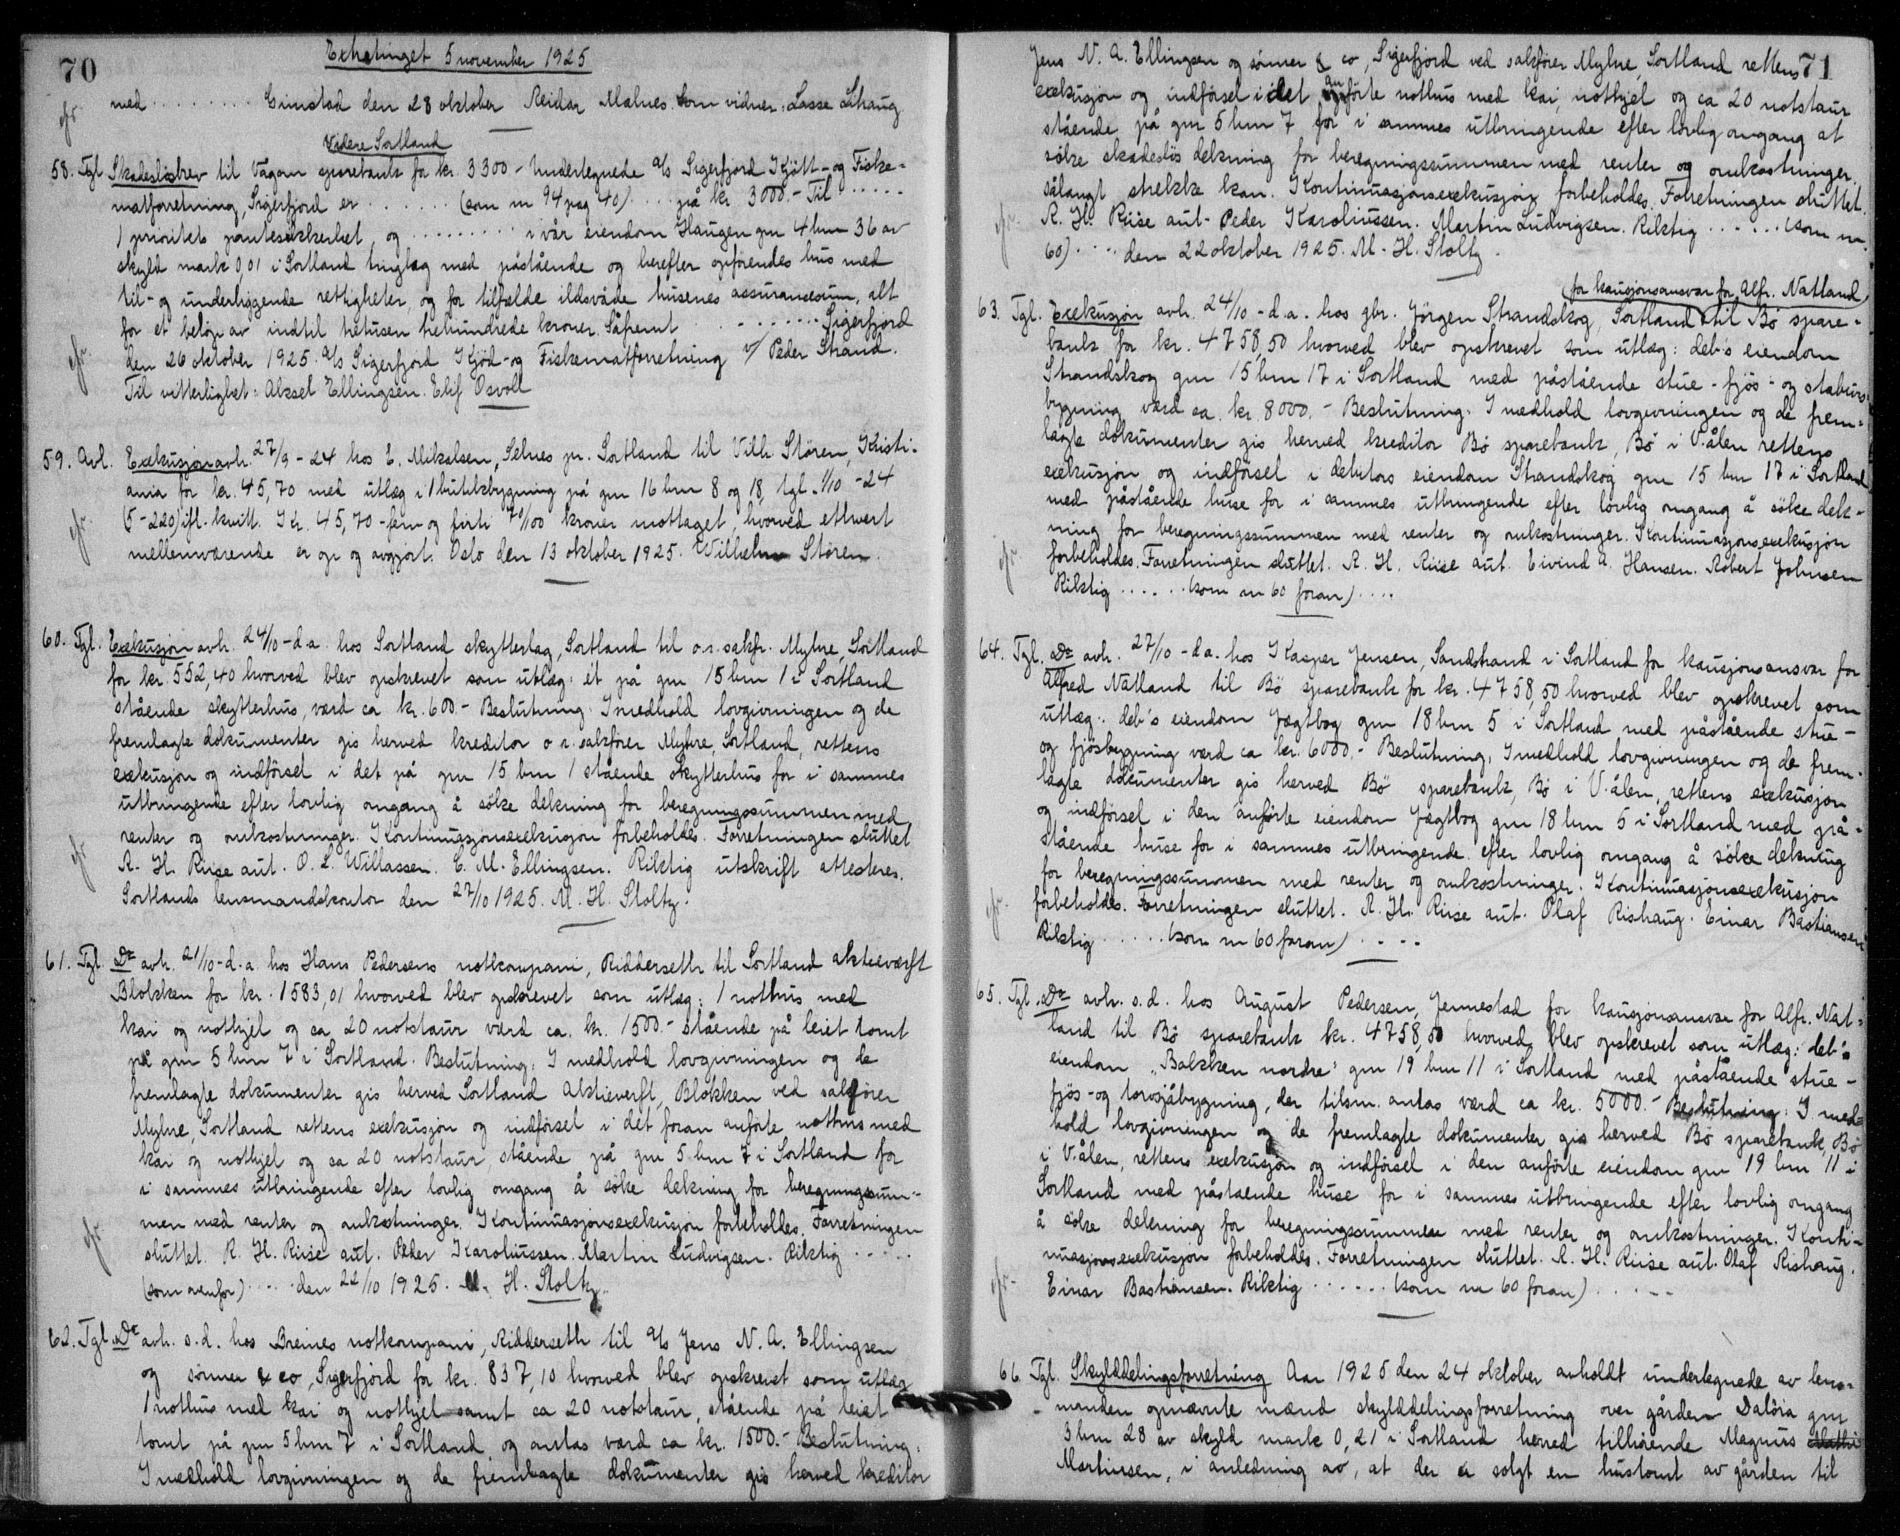 70
Extratinget 5 november 1925
med ........ Grinstad den 28 oktober Reidar Malnes. Som vidner: Lasse Lihaug
Videre Sortland
58. Tgl. Skadeslösbrev til Vågan sparebank for kr. 3300 - Undertegnede a/s Sigerfjord Kjött- og Fiske-
matforretning, Sigerfjord er ...... (som nr 94 pag 40) .... på kr. 3000.- Til .....
1 prioritets pantesikkerhet, og ........ i vår eiendom Haugen gnr 4 bnr 36 av
skyld mark 0,01 i Sortland tinglag med påstående og herefter opförendes hus med
til- og underliggende rettigheter, og for tilfælde ildsvåde husenes assurancesum, alt
for et belöp av indtil tretusen trehundrede kroner. Såfremt ........ Sigerfjord
den 26 oktober 1925. a/s Sigerfjord Kjöd- og Fiskematforretning v/ Peder Strand.
Til vitterlighet: Aksel Ellingsen. Elif Osvoll
59. Avl. Exekusjon avh. 27/9 - 24 hos E. Mikalsen, Selnes pr. Sortland til Vilh. Stören, Kristi-
ania for kr. 45,70 med utlæg i 1 butikbygning på gnr 16 bnr 8 og 18, tgl. 1/10 - 24
(5-220) ifl. kvitt. Kr. 45,70 - fem og firti 70/100 kroner mottaget, hvorved ethvert
mellemværende er op og avgjort. Oslo den 13 oktober 1925. Wilhelm Stören.
60. Tgl. Exekusjon avh. 24/10 - d.a. hos Sortland skytterlag, Sortland til o.r. sakfr. Myhre, Sortland
for kr. 552,40 hvorved blev opskrevet som utlæg: et på gnr 15 bnr 1 i Sortland
stående skytterhus, værd ca kr. 600.- Beslutning. I medhold lovgivningen og de
fremlagte dokumenter gis herved kreditor o.r. sakförer Myhre, Sortland, rettens
exekusjon og indförsel i det på gnr 15 bnr 1 stående skytterhus for i sammes
utbringende efter lovlig omgang å söke dekning for beregningssummen med
renter og omkostninger. Kontinuasjonsexekusjon forbeholdes. Forretningen sluttet
R. H. Riise aut. O. L. Willassen. E. M. Ellingsen. Riktig utskrift attesteres.
Sortlands lensmandskontor den 27/10 1925. M. H. Stoltz.
61. Tgl. Do avh. 21/10 - d.a. hos Hans Pedersens notkompani, Ridderseth til Sortland aktieværft
Blokken for kr. 1583,01 hvorved blev opskrevet som utlæg: 1 nothus med
kai og nothjel og ca 20 notstaur værd ca. kr. 1500.- stående på leiet tomt
på gnr 5 bnr 7 i Sortland. Beslutning: I medhold lovgivningen og de
fremlagte dokumenter gis herved Sortland Aktieverft, Blokken ved sakförer
Myhre, Sortland rettens exekusjon og indförsel i det foran anförte nothus med
kai og nothjel og ca 20 notstaur, stående på gnr 5 bnr 7 i Sortland for
i sammes utbringende efter lovlig omgang å söke dekning for beregningssum-
men med renter og omkostninger. Kontinuasjonsexekusjon forbeholdes. Forretningen
sluttet. R. H. Riise aut. Peder Karoliussen. Martin Ludvigsen. Riktig .....
(som ovenfor) .... den 22/10 1925. M. H. Stoltz.
62. Tgl. Do avh. s.d. hos Breines notkompani, Ridderseth til a/s Jens N. A. Ellingsen
og sönner & co, Sigerfjord for kr. 837,10 hvorved blev opskrevet som utlæg
1 nothus med kai og nothjel samt ca 20 notstaur, stående på leiet
tomt på gnr 5 bnr 7 i Sortland og antas værd ca kr. 1500.- Beslutning:
I medhold lovgivningen og de fremlagte dokumenter gis herved kreditor
71
Jens N. A. Ellingsen og sönner & co, Sigerfjord ved sakförer Myhre, Sortland rettens
exekusjon og indförsel i det anförte nothus med kai, nothjel og ca 20 notstaur
stående på gnr 5 bnr 7 for i sammes utbringende efter lovlig omgang at
söke skadeslös dekning for beregningssummen med renter og omkostninger
sålangt strekke kan. Kontinuasjonsexekusjon forbeholdes. Forretningen sluttet.
R. H. Riise aut. Peder Karoliussen. Martin Ludvigsen. Riktig ...... (som nr
60) .... den 22 oktober 1925. M. H. Stoltz.
(for kausjonsansvar for Alfr. Natland)
63. Tgl. Exekusjon avh. 24/10 - d.a. hos gbr. Jörgen Strandskog, Sortland til Bö spare-
bank for kr. 4758,50 hvorved blev opskrevet som utlæg: deb's eiendom
Strandskog gnr 15 bnr 17 i Sortland med påstående stue- fjös- og staburs-
bygning værd ca kr. 8000.- Beslutning. I medhold lovgivningen og de frem-
lagte dokumenter gis herved kreditor Bö sparebank, Bö i V.ålen rettens
exekusjon og indförsel i debitors eiendom Strandskog gnr 15 bnr 17 i Sortland
med påstående huse for i sammes utbringende efter lovlig omgang å söke dek-
ning for beregningssummen med renter og omkostninger. Kontinuasjonsexekusjon
forbeholdes. Forretningen sluttet. R. H. Riise aut. Eivind A. Hansen. Robert Johnsen
Riktig ...... (som nr 60 foran) ....
64. Tgl. Do avh. 27/10 - d.a. hos Kasper Jensen, Sandstrand i Sortland for kausjonsansvar for
Alfred Natland til Bö sparebank for kr. 4758,50 hvorved blev opskrevet som
utlæg: deb's eiendom Jægtbog gnr 18 bnr 5 i Sortland med påstående stue-
og fjösbygning værd ca kr. 6000.- Beslutning: I medhold lovgivningen og de frem-
lagte documenter gis herved Bö sparebank, Bö i V.ålen, rettens exekusjon
og indförsel i den anförte eiendom Jægtbog gnr 18 bnr 5 i Sortland med på-
stående huse for i sammes utbringende efter lovlig omgang å söke dekning
for beregningssummen med renter og omkostninger. Kontinuasjonsexekusjon
forbeholdes. Forretningen sluttet. R. H. Riise aut. Olaf Rishaug. Einar Bastiansen
Riktig ...... (som nr 60 foran) ....
65. Tgl. Do avh. s.d. hos August Pedersen, Jennestad for kausjonsansvar for Alfr. Nat-
land til Bö sparebank kr. 4758,50 hvorved blev opskrevet som utlæg: deb's
eiendom "Bakken nordre" gnr 19 bnr 11 i Sortland med påstående stue-
fjös- og torvsjåbygning, der tilsm. antas værd ca kr. 5000.- Beslutning: I med-
hold lovgivningen og de fremlagte dokumenter gis herved Bö sparebank, Bö
i V.ålen, rettens exekusjon og indförsel i den anförte eiendom gnr 19 bnr 11 i
Sortland med påstående huse for i sammes utbringende efter lovlig omgang
å söke dekning for beregningssummen med renter og omkostninger. Konti-
nuasjonsexekusjon forbeholdes. Forretningen sluttet. R. H. Riise aut. Olaf Rishaug.
Einar Bastiansen. Riktig ...... (som nr 60 foran) .....
66. Tgl. Skylddelingsforretning Aar 1925 den 24 oktober avholdt undertegnede av lens-
manden opnævnte mænd skylddelingsforretning over gården Dalöra gnr
3 bnr 28 av skyld mark 0,21 i Sortland herred tilhörende Magnus
Martinsen, i anledning av, at der er solgt en hustomt av gården til